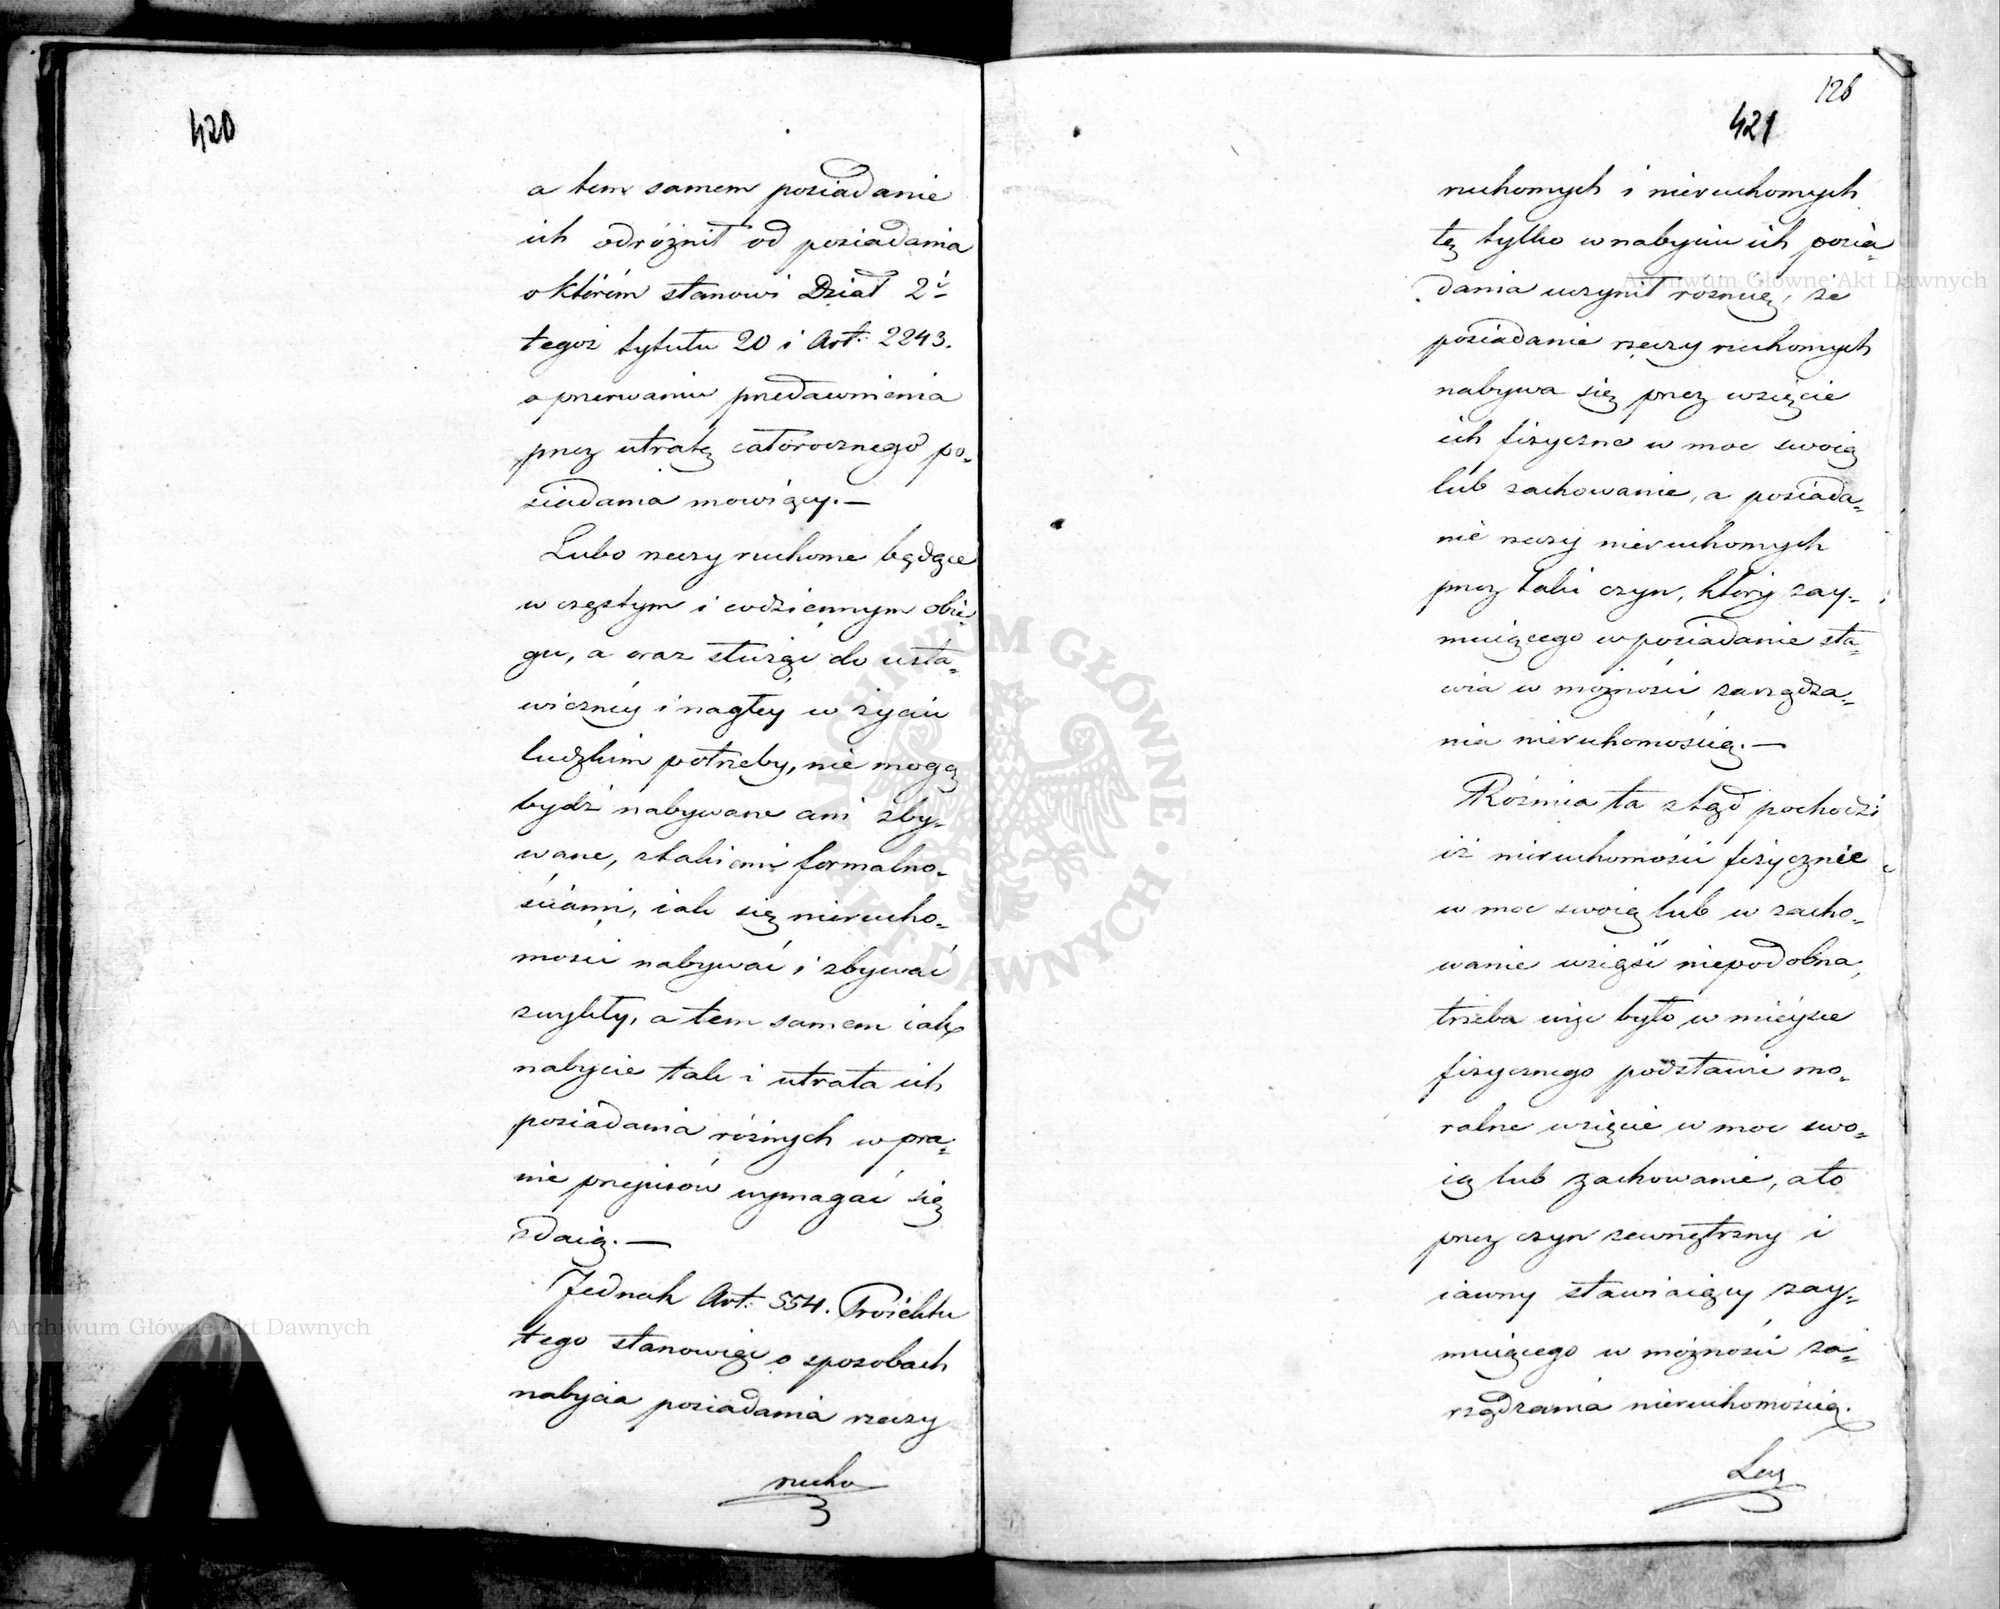 420
a tem samem posiadanie
ich odróżnił od posiadania
o którém stanowi Dział 2i
tegoż tytułu 20 i Art: 2243.
o przerwaniu przedawnienia
przez utratę całorocznego po-
siadania mówiący.—
Lubo rzeczy ruchome będące
w częstym i codziennym obie-
gu, a oraz służąc do usta-
wiczney i nagłey w życiu
ludzkim potrzeby, nie mogą
bydź nabywane ani zby-
wane, z takiemi formalno-
ściami, iak się nierucho-
mości nabywać i zbywać
zwykły, a tem samem iak
nabycie tak i utrata ich
posiadania różnych w pra-
wie przepisów wymagać się
zdaią.—
Jednak Art: 554. Proiektu
tego stanowiąc o sposobach
nabycia posiadania rzeczy
rucho
126
421
ruchomych i nieruchomych
tę tylko w nabyciu ich posia-
dania uczynił roznicę, że
posiadanie rzeczy ruchomych
nabywa się przez wzięcie
ich fizyczne w moc swoią
lub zachowanie, a posiada-
nie rzeczy nieruchomych
przez taki czyn, który zay-
muiącego w posiadanie sta-
wia w możności zarządza-
nia nieruchomością.—
Różnica ta ztąd pochodzi
iż nieruchomości fizycznie
w moc swoią lub w zacho-
wanie wziąść niepodobna,
trzeba więc było w mieysce
fizycznego podstawić mo-
ralne wzięcie w moc swo-
ią lub zachowanie, a to
przez czyn zewnętrzny i
iawny stawiaiący zay-
muiącego w możności za-
rządzania nieruchomością.
Lecz
Archiwum Główne Akt Dawnych
Archiwum Główne Akt Dawnych
ARCHIWUM GŁÓWNE AKT DAWNYCH